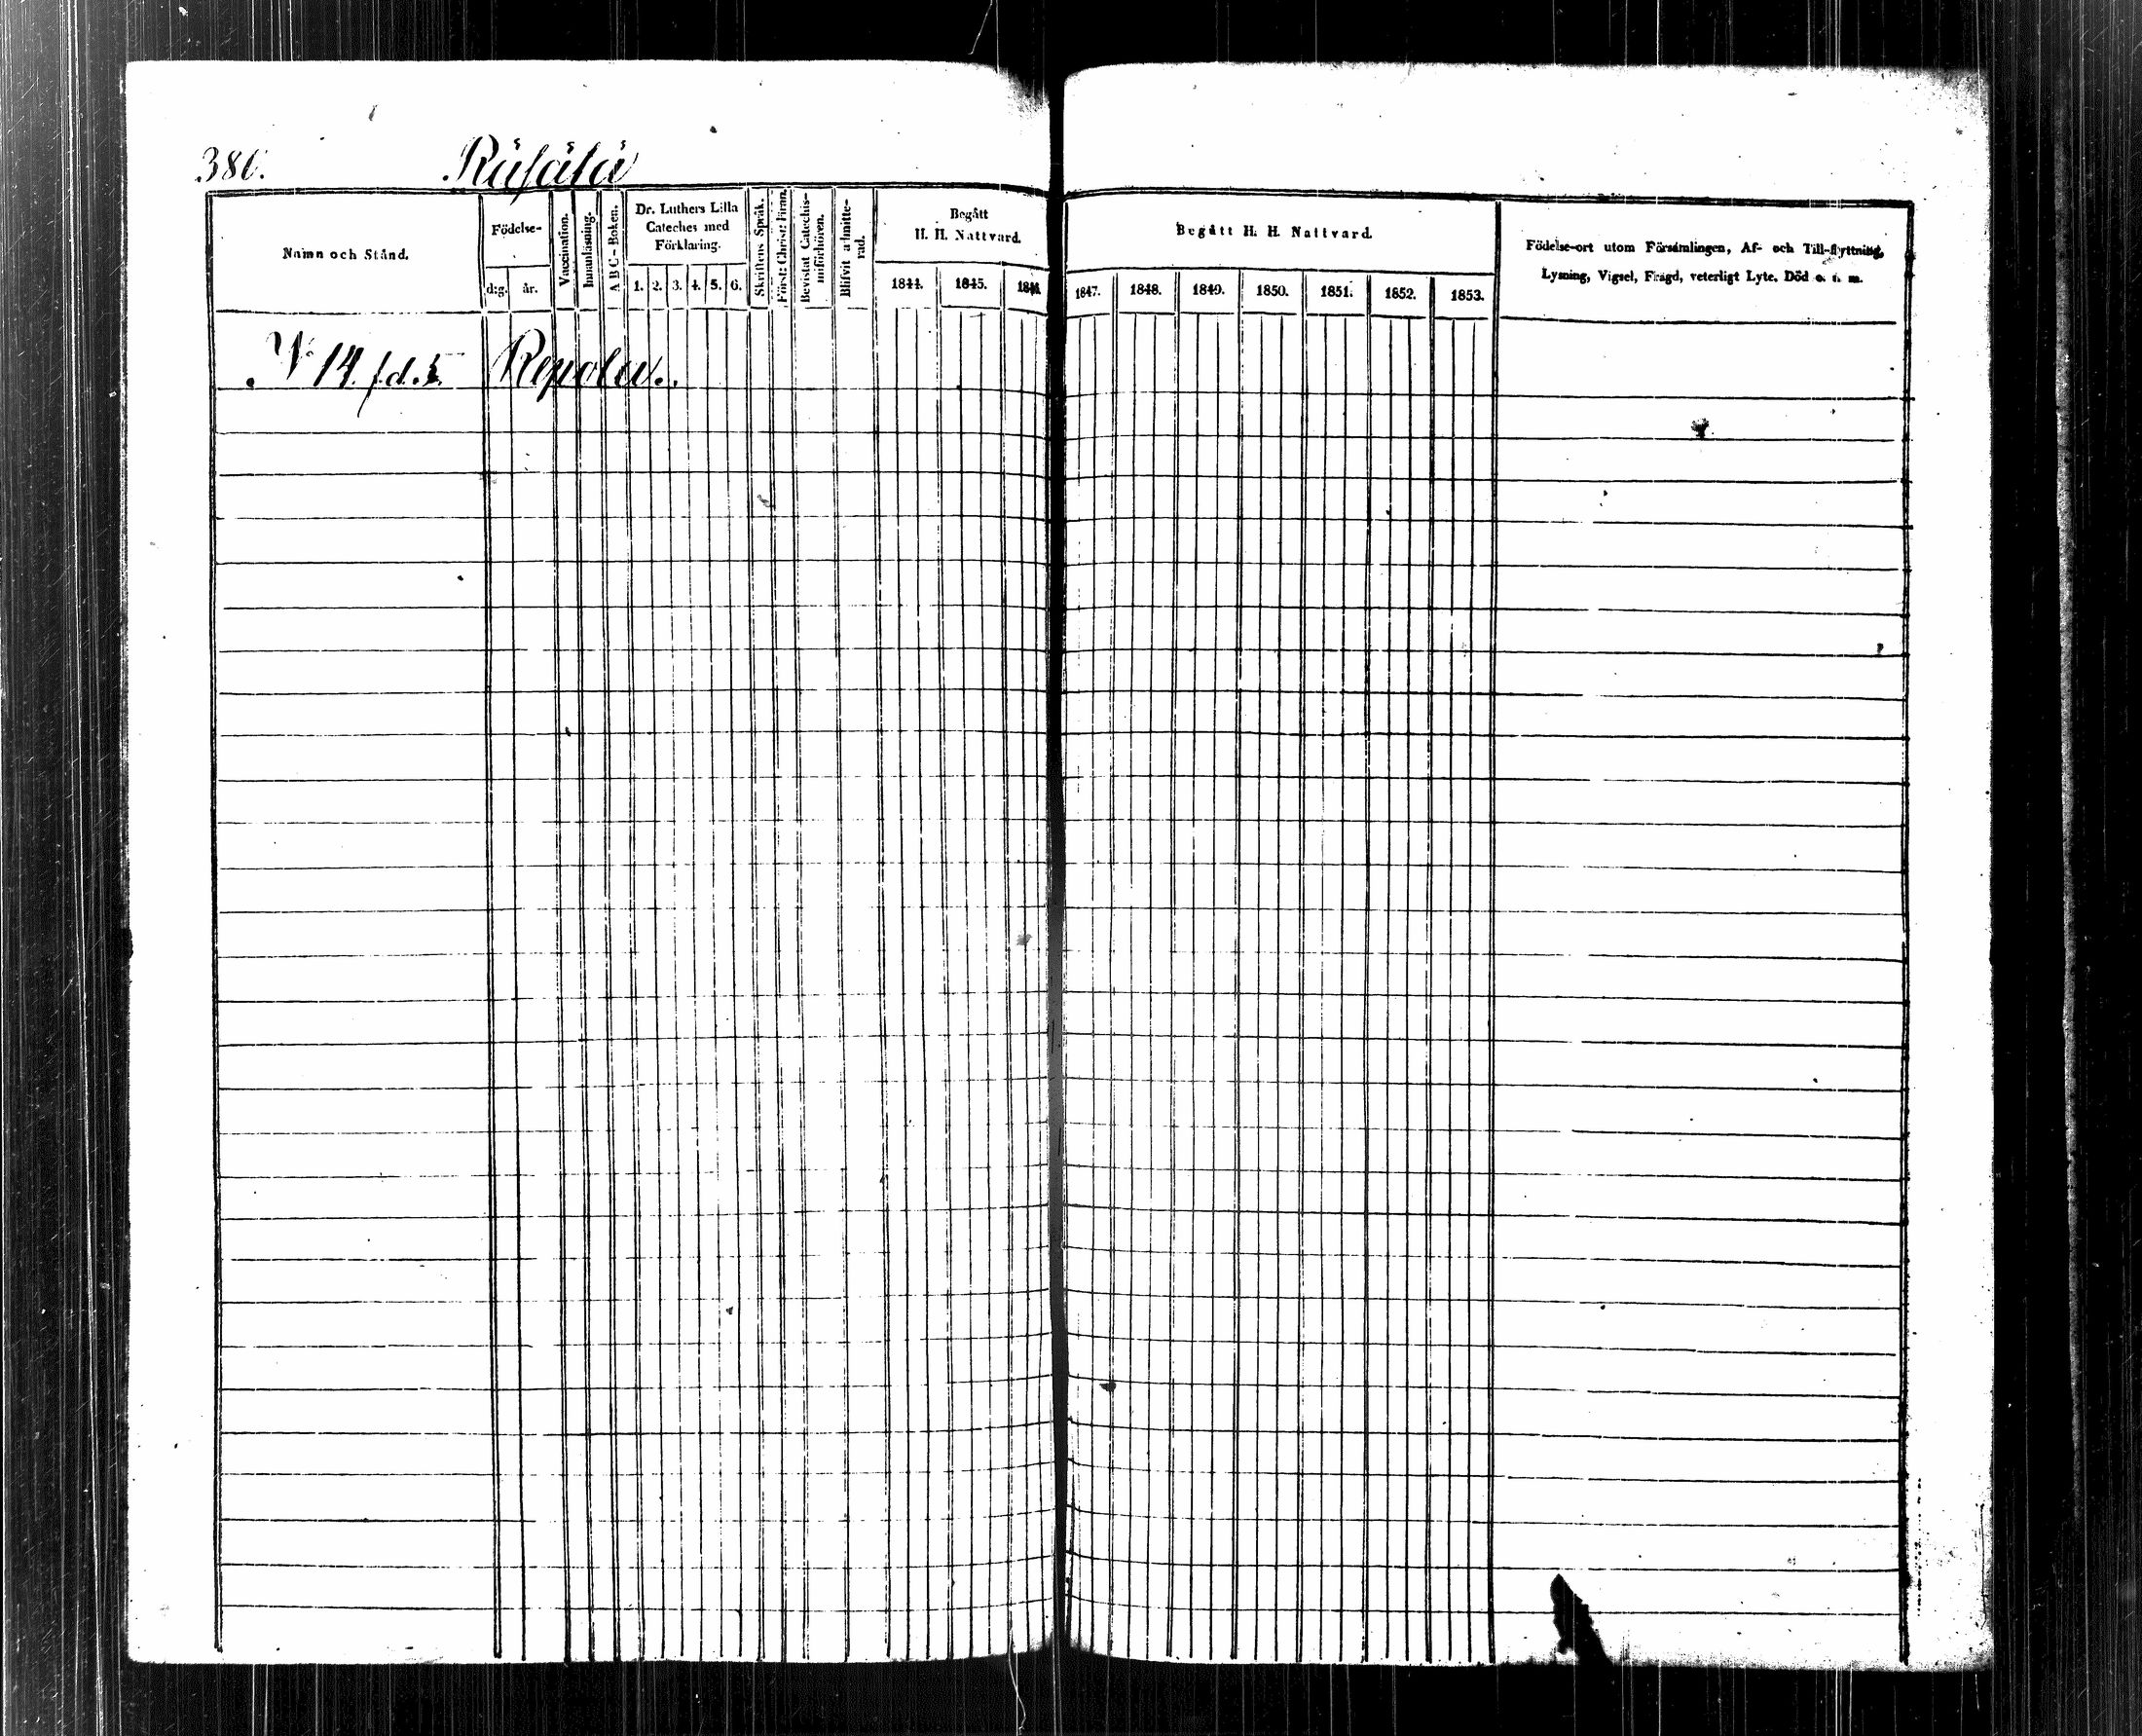 386. Räsälä
Namn och Stånd.
Födelse-
d:g. år.
Vaccination.
Innanläsning.
A B C - Boken.
Dr. Luthers Lilla
Cateches med
Förklaring.
1. 2. 3. 4. 5. 6.
Skriftens Språk.
Bevistat Catechis-
miförhören.
Blifvit admitte-
rad.
Begått
H. H. Nattvard.
1844. 1845. 1846.
Begått H. H. Nattvard.
1847. 1848. 1849. 1850. 1851. 1852. 1853.
Födelse-ort utom Församlingen, Af- och Till-flyttning,
Lysning, Vigsel, Frägd, veterligt Lyte, Död o. s. m.
N 14. f.d. 5. Repola.